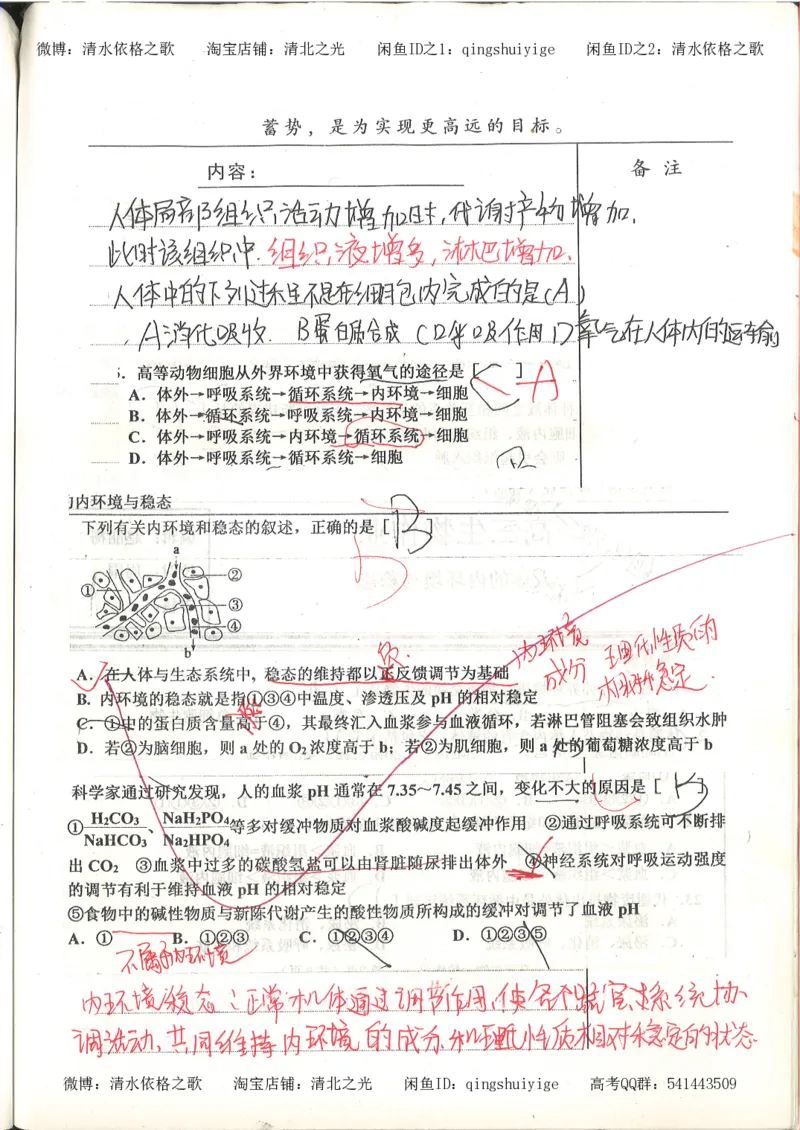 微博：清水依格之歌 淘宝店铺：清北之光 闲鱼ID之1：qingshuiyige 闲鱼ID之2：清水依格之歌
蓄势，是为实现更高远的目标。
内容： 备注
人体局部组织活动增加时，代谢产物增加，
此时该组织中．组织液增多，淋巴增加．
人体中的下列过程不是在细胞内完成的是（A）
A消化吸收． B蛋白质合成 C呼吸作用 D氧气在人体内的运输
高等动物细胞从外界环境中获得氧气的途径是［C］ A
A．体外→呼吸系统→循环系统→内环境→细胞
B．体外→循环系统→呼吸系统→内环境→细胞
C．体外→呼吸系统→内环境→循环系统→细胞
D．体外→呼吸系统→循环系统→细胞
内环境与稳态
下列有关内环境和稳态的叙述，正确的是［B］
a
②
①
③
④
b
内环境成分 理化性质的相对稳定．
负．
A．在人体与生态系统中，稳态的维持都以正反馈调节为基础
B．内环境的稳态就是指①③④中温度、渗透压及 pH 的相对稳定
C．①中的蛋白质含量高于④，其最终汇入血浆参与血液循环，若淋巴管阻塞会致组织水肿
D．若②为脑细胞，则 a 处的 O₂ 浓度高于 b；若②为肌细胞，则 a 处的葡萄糖浓度高于 b
科学家通过研究发现，人的血浆 pH 通常在 7.35～7.45 之间，变化不大的原因是［ ］
① H₂CO₃/NaHCO₃、NaH₂PO₄/Na₂HPO₄等多对缓冲物质对血浆酸碱度起缓冲作用 ②通过呼吸系统可不断排
出 CO₂ ③血浆中过多的碳酸氢盐可以由肾脏随尿排出体外 ④神经系统对呼吸运动强度
的调节有利于维持血液 pH 的相对稳定
⑤食物中的碱性物质与新陈代谢产生的酸性物质所构成的缓冲对调节了血液 pH
A．① B．①②③ C．①②③④ D．①②③⑤
不属于内环境
内环境稳态：正常机体通过调节作用，使各个器官、系统协
调活动、共同维持内环境的成分和理化性质相对稳定的状态
微博：清水依格之歌 淘宝店铺：清北之光 闲鱼ID：qingshuiyige 高考QQ群：541443509